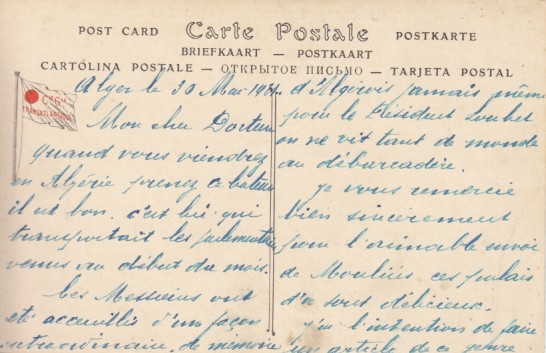 POST CARD Carte Postale POSTKARTE
BRIEFKAART — POSTKAART
CARTOLINA POSTALE — ОТКРЫТОЕ ПИСЬМО — TARJETA POSTAL
Cie Gle
TRANSATLANTIQUE
Alger le 30 Mai
Mon cher Docteur
Quand vous viendrez
en Algérie prenez ce bateau
il est bon. c'est lui qui
transportait les parlementaires
venus au début du mois.
Ces Messieurs ont
été accueillis d'un façon
extraordinaire. de mémoire
d'Algérois jamais même
pour le Président Loubet
on ne vit tant de monde
au débarcadère.
Je vous remercie
bien sincèrement
pour l'aimable envoi
de Mouliis, ces palais
d'a sont délicieux.
j'ai l'intention de faire
un article de ce genre